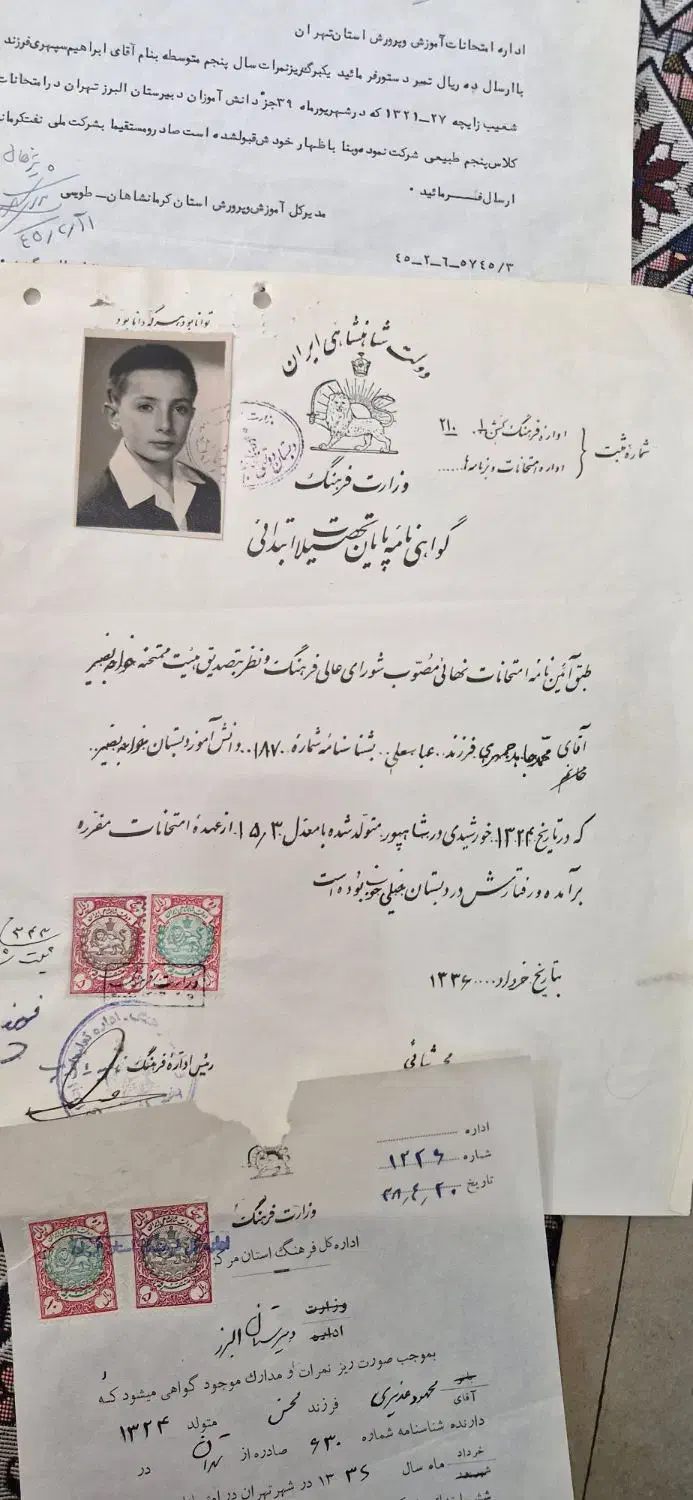 اداره امتحانات آموزش وپرورش استان تهران
باارسال ده ریال تمبر دستور فرمائید یکبرگ ریزنمرات سال پنجم متوسطه بنام آقای ابراهیم سپهری فرزند
شعیب زایچه ۲۷ــ۱۳۲۱ که در شهریورماه ۳۹ جزء دانش آموزان دبیرستان البرز تهران در امتحانات
کلاس پنجم طبیعی شرکت نموده وبنا باظهار خودش قبولشده است صادر ومستقیما بشرکت ملی نفت کرمانشاه
ارسال فـــرمائید ۰
مدیرکل آموزش وپرورش استان کرمانشاهان ــ طوسی
۴۵ــ۲ــ۶ــ۵۷۴۵/۳
توانا بود هر که دانا بود
دولت شاهنشاهی ایران
شماره ثبت
اداره فرهنگ ۲۱۰
اداره امتحانات و برنامه‌ها......
وزارت فرهنگ
گواهی نامه پایان تحصیلات ابتدائی
طبق آئین نامه امتحانات نهائی مصوب شورای عالی فرهنگ و نظر بتصدیق هیئت ممتحنه خواجه نصیر
آقای محمد جمهری فرزند عباسعلی بشناسنامه شماره ۱۸۷۰ دانش آموز دبستان خواجه نصیر
که در تاریخ ۱۳۲۴ خورشیدی در شاهپور متولد شده با معدل ۱۵/۳ از عهده امتحانات مقرره
برآمده و رفتارش در دبستان خیلی خوب بوده است
بتاریخ خرداد .... ۱۳۳۶
رئیس اداره فرهنگ
اداره
شماره ۱۲۲۶
تاریخ ۳۸٫۴٫۲۰
وزارت فرهنگ
اداره کل فرهنگ استان مرکزی
وزارت
اداره دبیرستان البرز
بموجب صورت ریز نمرات و مدارك موجود گواهی میشود که
بانو
آقای محمود عذیری فرزند محسن متولد ۱۳۲۴
دارنده شناسنامه شماره ۶۳۰ صادره از تهران در
خرداد
شهریور ماه سال ۱۳۳۶ در شهر تهران در